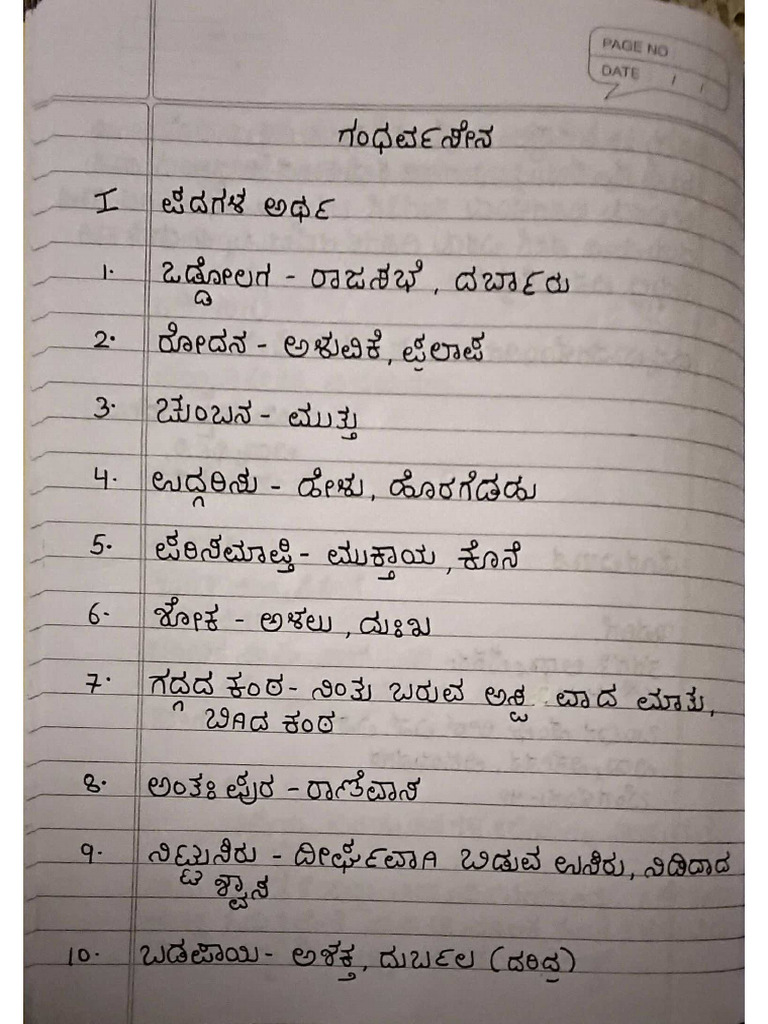 PAGE NO
DATE / /
ಗಂಧರ್ವಸೇನ
I ಪದಗಳ ಅರ್ಥ
1. ಒಡ್ಡೋಲಗ - ರಾಜಸಭೆ, ದರ್ಬಾರು
2. ರೋದನ - ಅಳುವಿಕೆ, ಪ್ರಲಾಪ
3. ಚುಂಬನ - ಮುತ್ತು
4. ಉದ್ಗರಿಸು - ಹೇಳು, ಹೊರಗೆಡಹು
5. ಪರಿಸಮಾಪ್ತಿ - ಮುಕ್ತಾಯ, ಕೊನೆ
6. ಶೋಕ - ಅಳಲು, ದುಃಖ
7. ಗದ್ಗದ ಕಂಠ - ನಿಂತು ಬರುವ ಅಸ್ಪ ವಾದ ಮಾತು,
ಬಿಗಿದ ಕಂಠ
8. ಅಂತಃಪುರ - ರಾಣಿವಾಸ
9. ನಿಟ್ಟುಸಿರು - ದೀರ್ಘವಾಗಿ ಬಿಡುವ ಉಸಿರು, ನಿಡಿದಾದ
ಶ್ವಾಸ
10. ಬಡಪಾಯಿ - ಅಶಕ್ತ, ದುರ್ಬಲ (ದರಿದ್ರ)